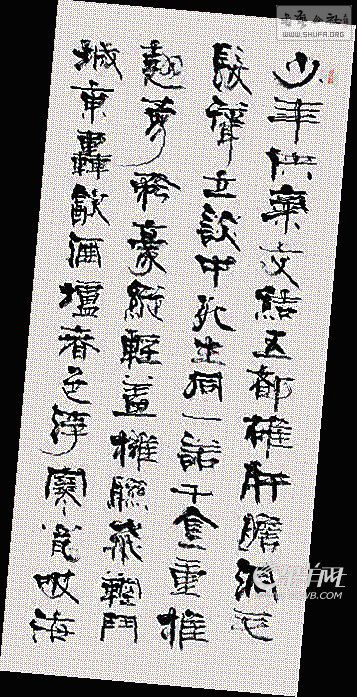 少年俠氣交結五都雄肝膽洞毛
髮聳立談中死生同一諾千金重推
翹勇矜豪縱輕蓋擁聯飛鞚鬥
城東轟飲酒壚春色浮寒甕吸海
WWW.SHUFA.ORG